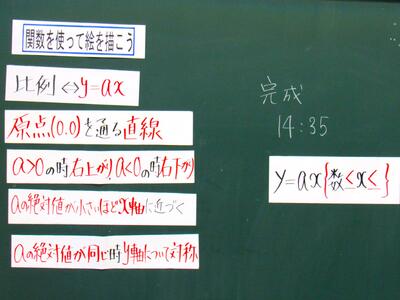 関数を使って絵を描こう
比例⇔y=ax
原点(0.0)を通る直線
a>0の時右上がり、a<0の時右下がり
aの絶対値が小さいほどx軸に近づく
aの絶対値が同じ時y軸について対称
完成
14:35
y=ax{数≦x≦}